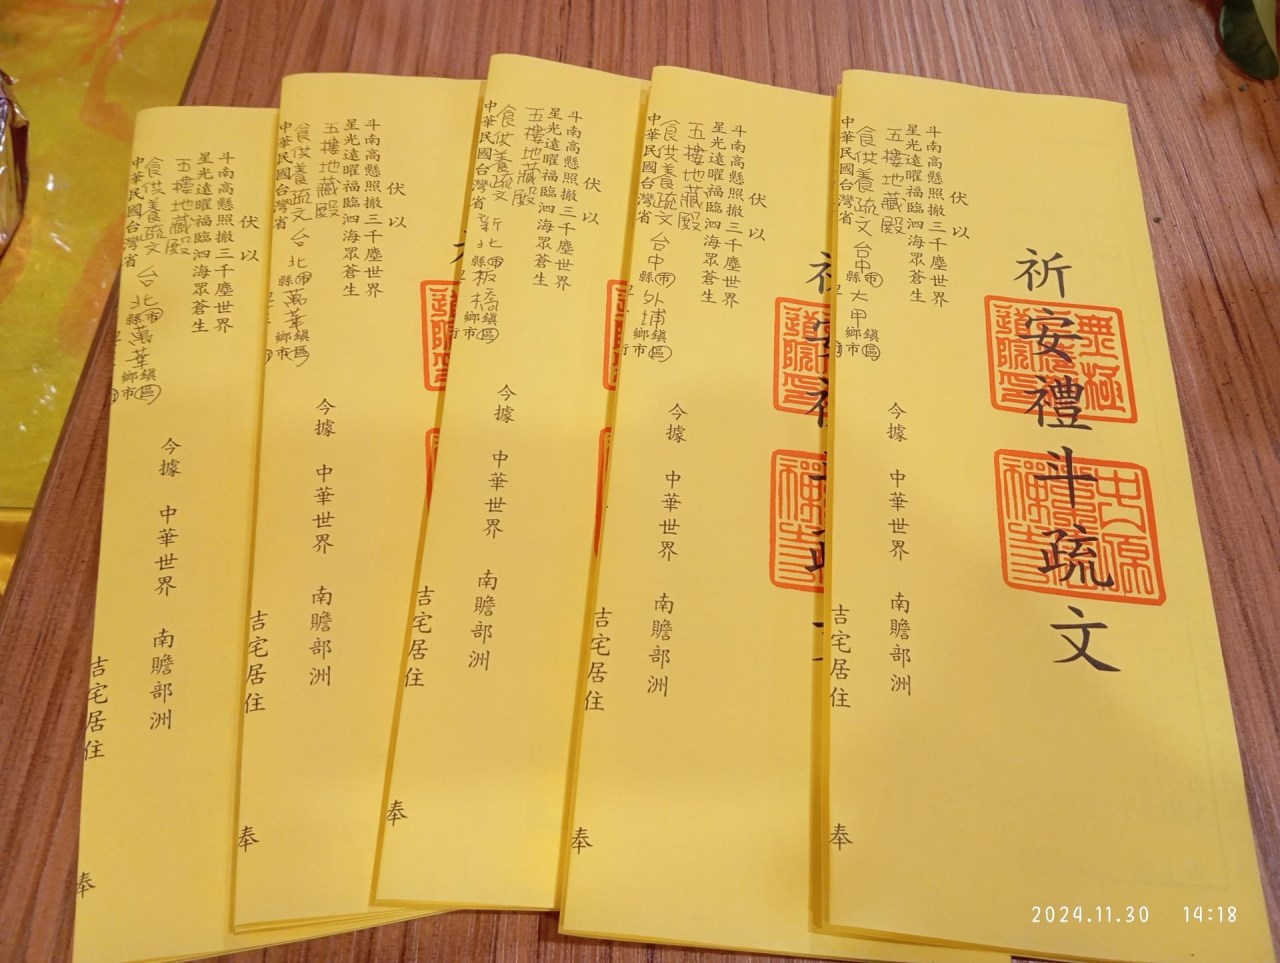 祈安禮斗疏文
無極
道院
中原
禪寺
伏以
斗南高懸照撤三千塵世界
星光遠曜福臨泗海眾蒼生
五樓地藏殿
食供養疏文
中華民國台灣省
台中市縣大甲鄉鎮市區
今據 中華世界 南贍部洲
吉宅居住
奉
伏以
斗南高懸照撤三千塵世界
星光遠曜福臨泗海眾蒼生
五樓地藏殿
食供養疏文
中華民國台灣省
台中市縣外埔鄉鎮市區
今據 中華世界 南贍部洲
吉宅居住
奉
伏以
斗南高懸照撤三千塵世界
星光遠曜福臨泗海眾蒼生
五樓地藏殿
食供養疏文
中華民國台灣省
新北市縣板橋鄉鎮市區
今據 中華世界 南贍部洲
吉宅居住
奉
伏以
斗南高懸照撤三千塵世界
星光遠曜福臨泗海眾蒼生
五樓地藏殿
食供養疏文
中華民國台灣省
台北市縣萬華鄉鎮市區
今據 中華世界 南贍部洲
吉宅居住
奉
伏以
斗南高懸照撤三千塵世界
星光遠曜福臨泗海眾蒼生
五樓地藏殿
食供養疏文
中華民國台灣省
台北市縣萬華鄉鎮市區
今據 中華世界 南贍部洲
吉宅居住
奉
2024.11.30 14:18